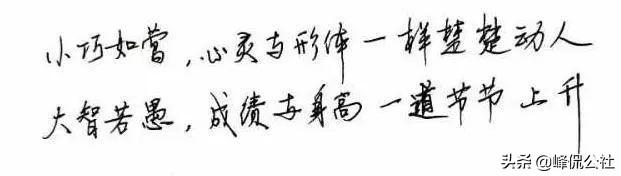 小巧如,心灵与形体一样楚楚动人
大智若愚,成绩与身高一道节节上升
头条@峰侃公社